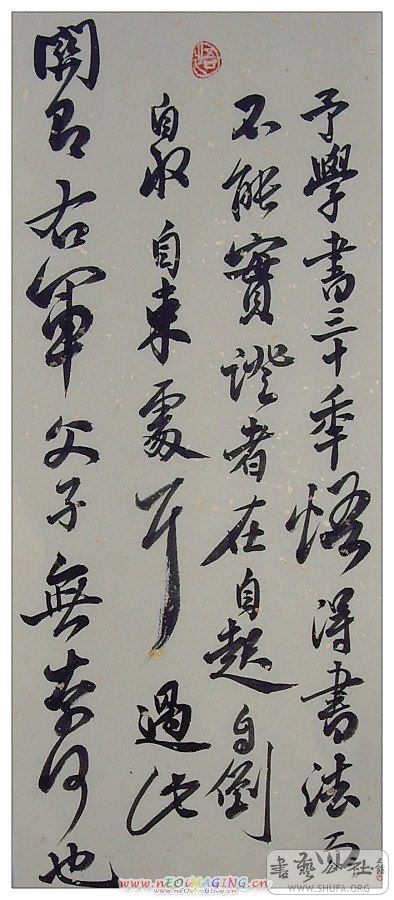 予學書三十年悟得書法而
不能實證者在自起自倒
自收自束處耳過此
關即右軍父子無奈何也
悟
書藝公社
WWW.SHUFA.ORG
www.nEOiMAGING.cn